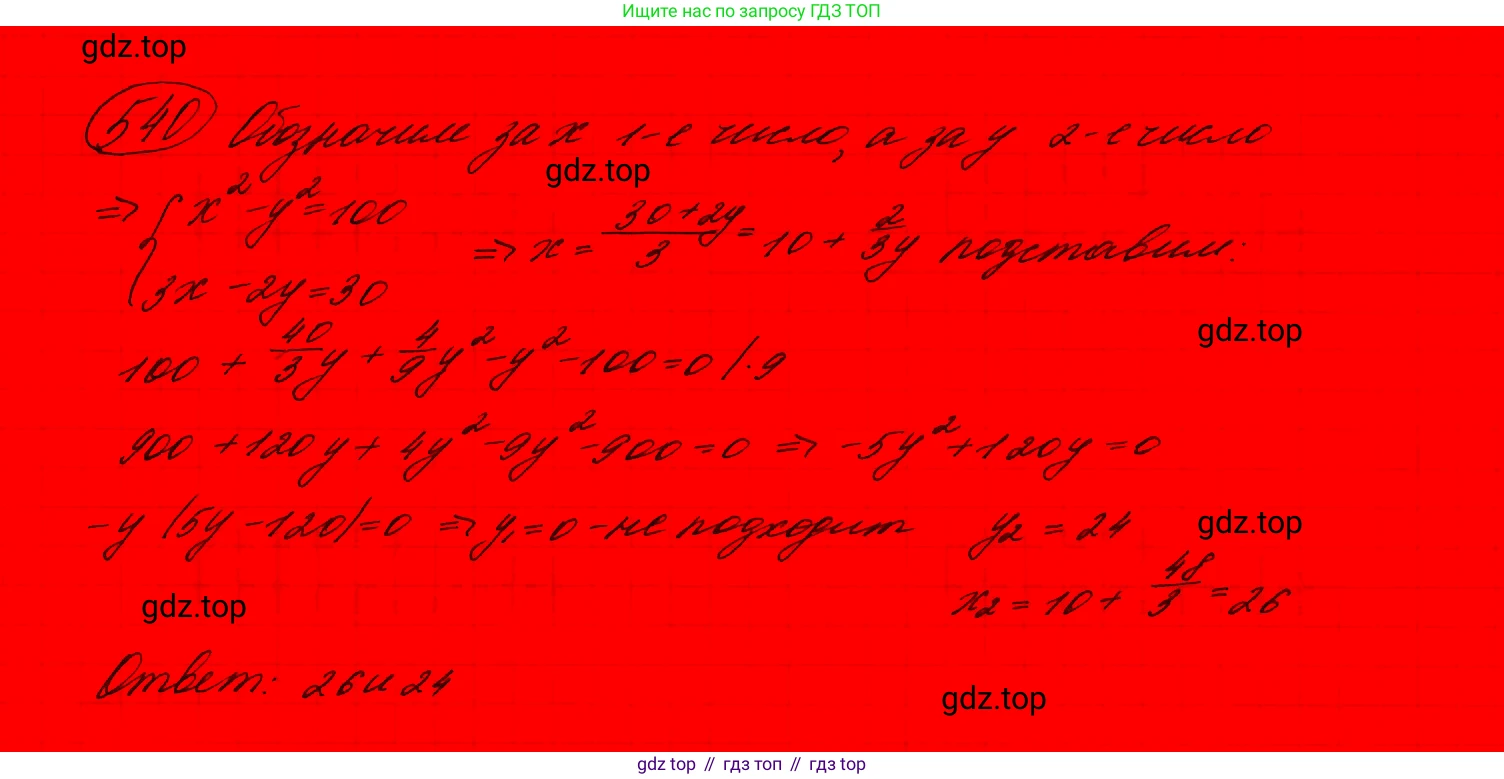 Ищите нас по запросу ГДЗ ТОП
gdz.top
540 Обозначим за x 1-е число, а за y 2-е число
gdz.top
=> { x² - y² = 100
3x - 2y = 30
=> x = (30 + 2y)/3 = 10 + 2/3 y подставим:
gdz.top
100 + 40/3 y + 4/9 y² - y² - 100 = 0 | · 9
900 + 120y + 4y² - 9y² - 900 = 0 => -5y² + 120y = 0
-y (5y - 120) = 0 => y₁ = 0 - не подходит y₂ = 24
gdz.top
x₂ = 10 + 48/3 = 26
gdz.top
Ответ: 26 и 24
gdz.top
gdz top // гдз топ // гдз top